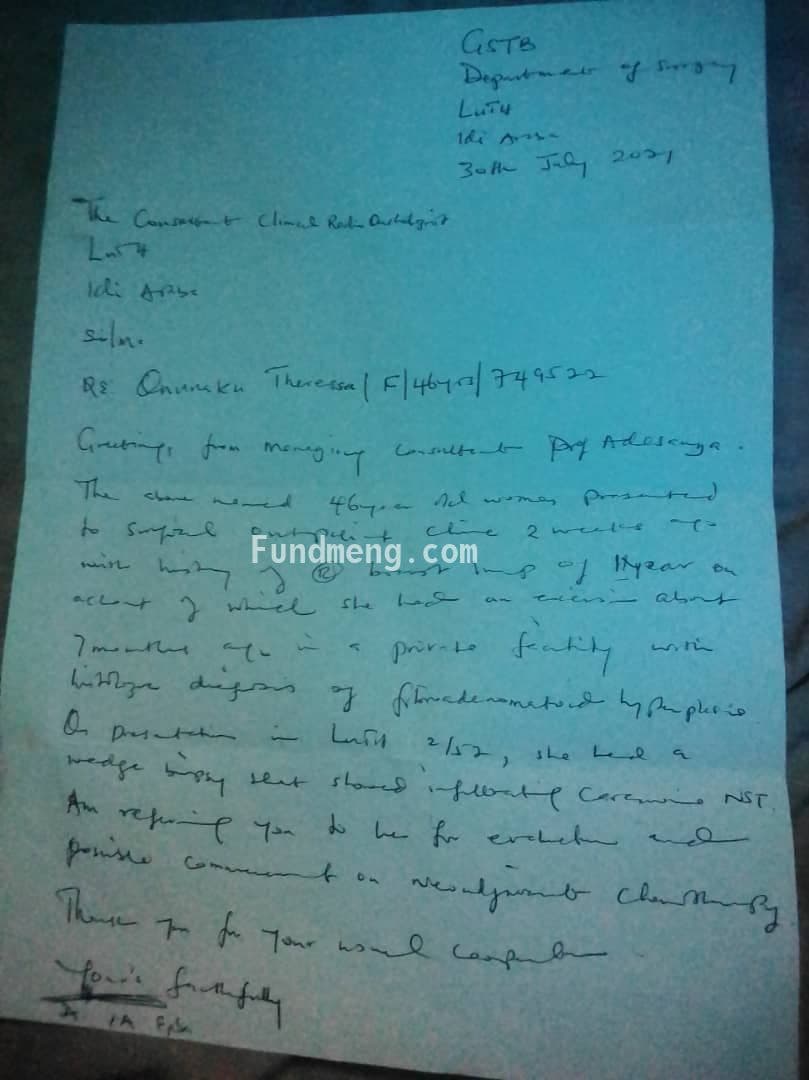 GSTB
Department of Surgery
LUTH
Idi Araba
30th July 2021
The Consultant Clinical Radio Oncologist
LUTH
Idi Araba
Sir/M.
RE Theressa/ F/46yrs/749522
Greetings from managing consultant Prof Adesanya.
The above named 46year old woman presented
to surgical outpatient clinic 2 weeks ago
Fundmeng.com
with history of (R) breast lump of 1year on
account of which she had an excision about
7months ago in a private facility with
histologic diagnosis of fibroadenomatoid hyperplasia
On presentation in LUTH 2/52, she had a
wedge biopsy that showed infiltrating carcinoma NST.
Am referring you to her for evaluation and
possible commencement on neoadjuvant chemotherapy
Thank you for your usual cooperation.
Yours faithfully
Dr